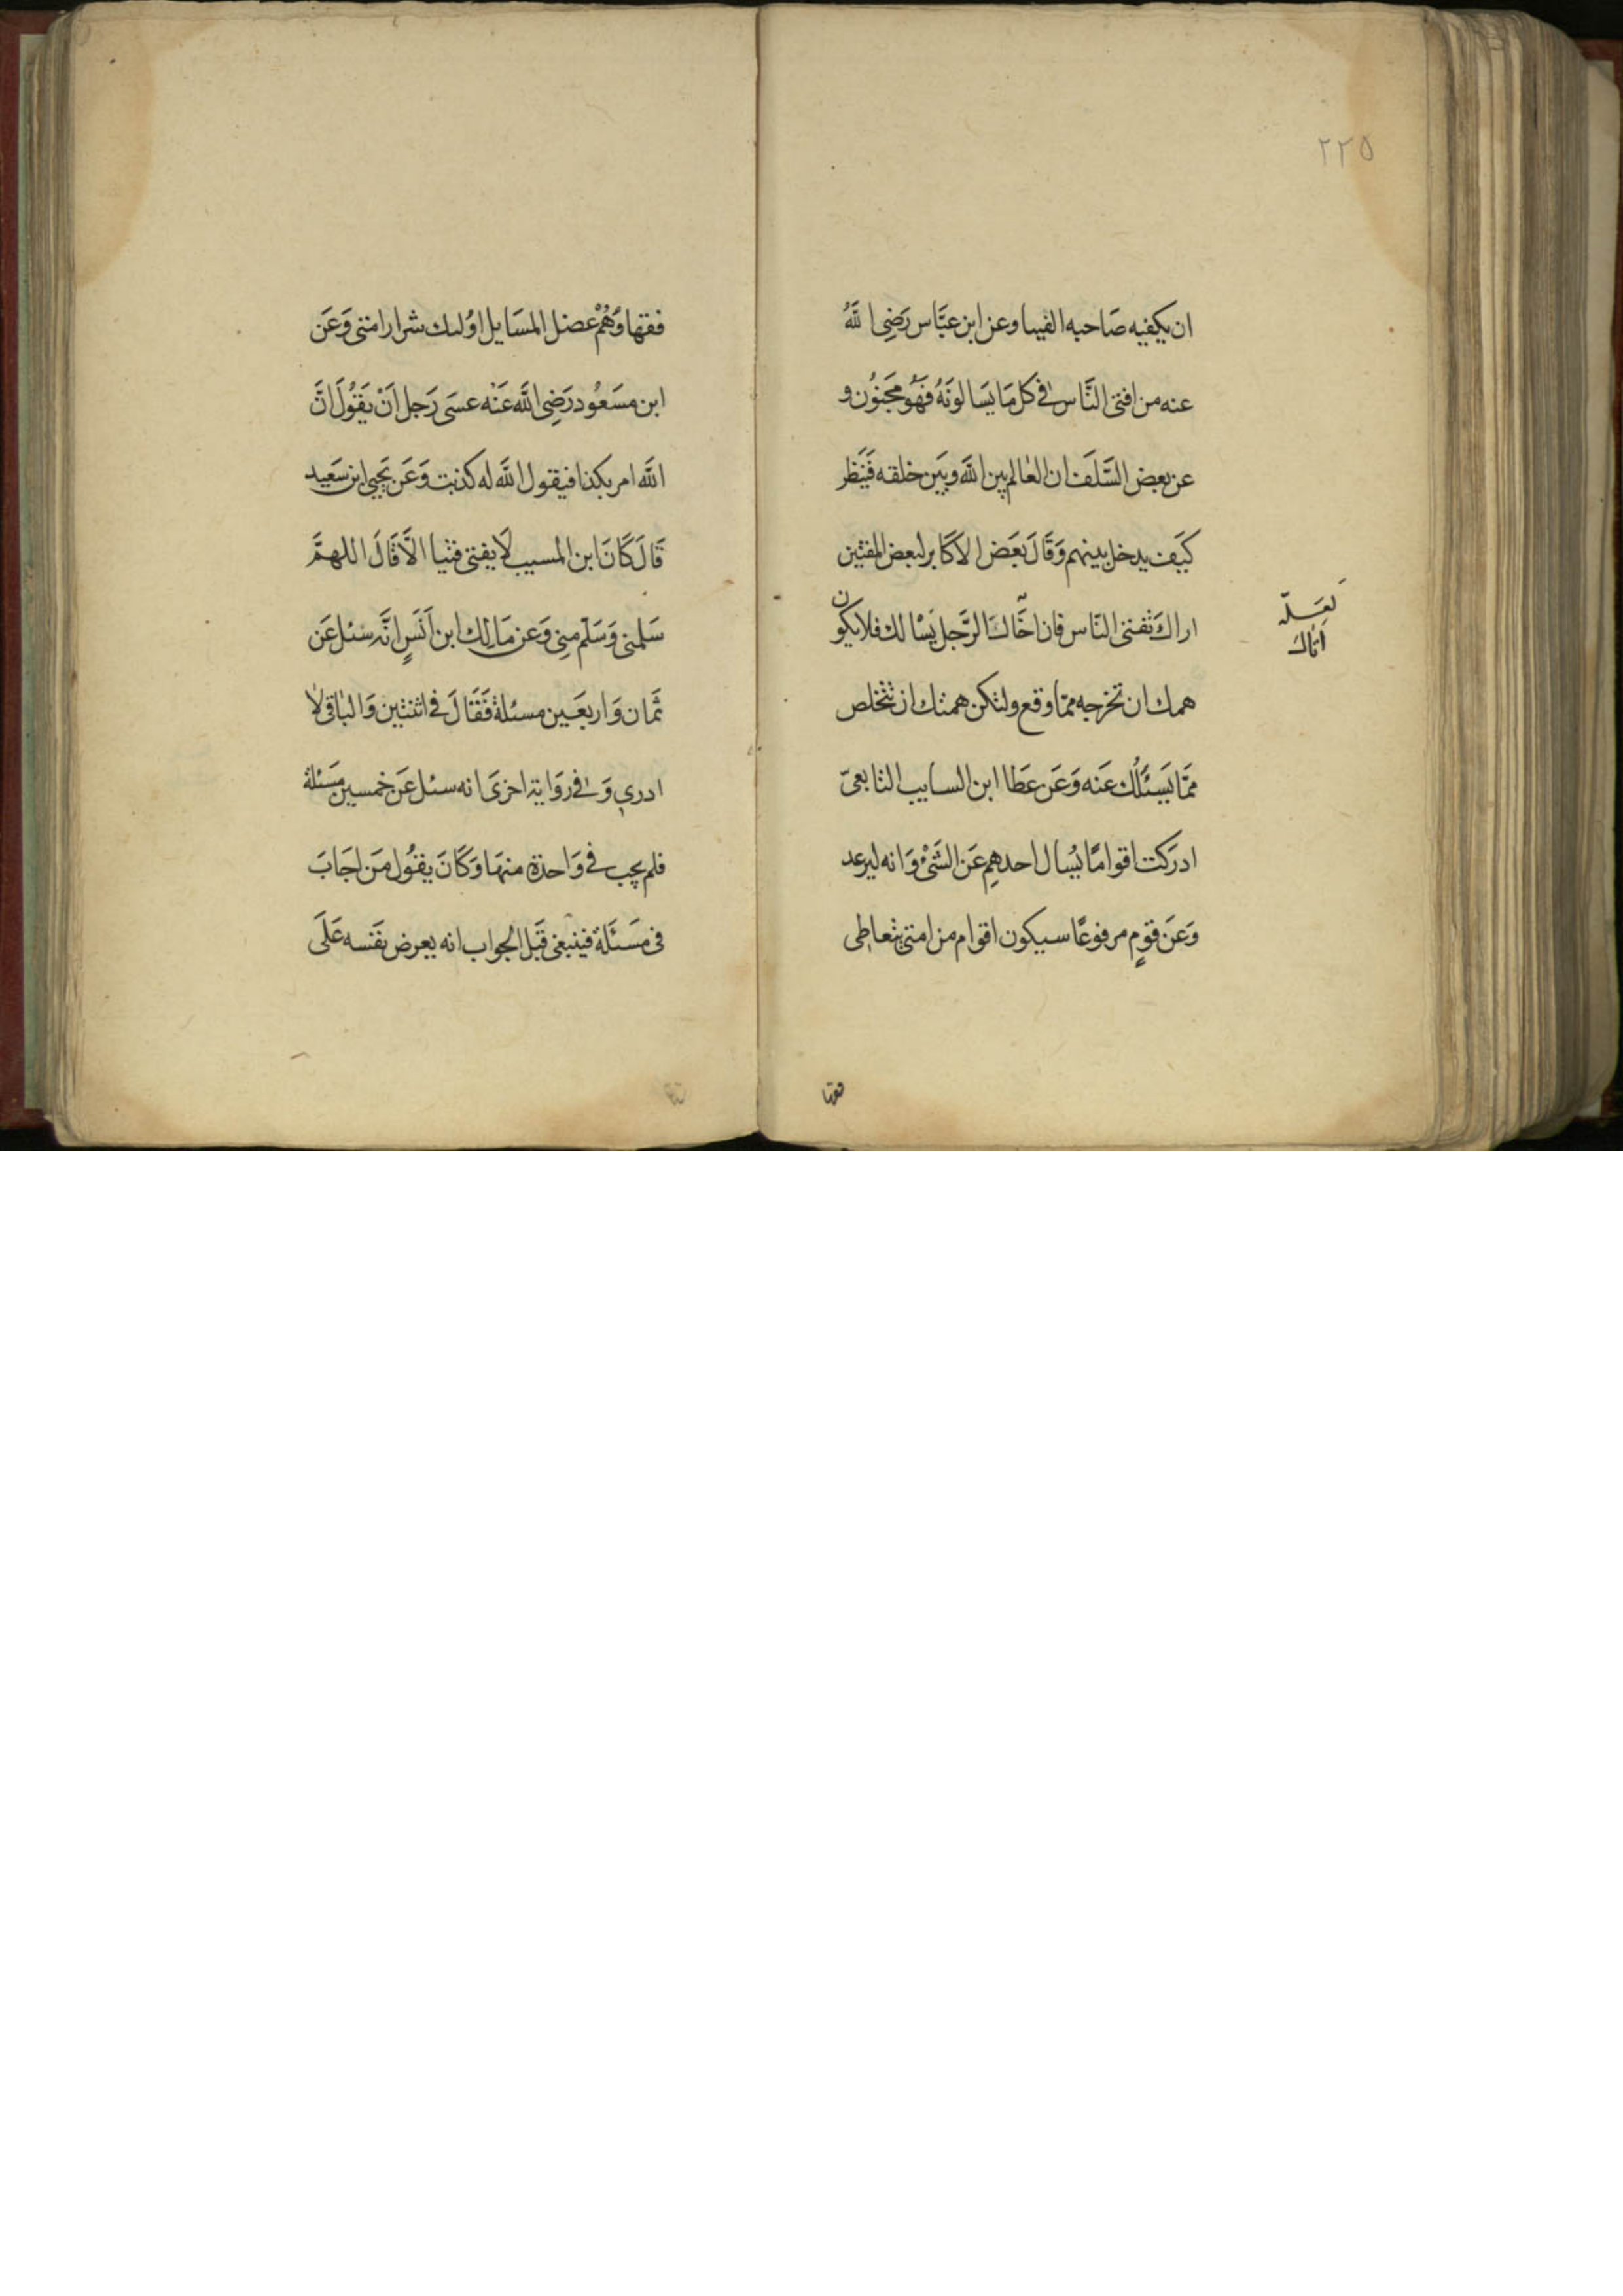 ٢٢٥
ان يكفيه صَاحبه الفيبا وعن ابن عبَّاس رَضِي اللَّهُ
عنه من افتى النَّاس فى كل مَا يَسَالونَهُ فَهُو مجَنوُن و
عن بعض السَّلَف ان العٰالم بين اللَّه وبَين خلقه فَيَنَظر
كيَف يدخل بينهم وَقَالَ بعَض الاكَابر لبعض المفتين
اراكَ تفتى النّاس فان اخَّاكَ الرَّجل يَسْالك فلا يكون
لعَسَلّه
اتَاكَ
همك ان تخرجه ممّا وقع ولتكن همتك ان تتخلص
ممَّا يَسِئَلُك عَنه وَعَن عَطَا ابن السايب التابعىّ
ادرَكت اقوامًا يُسْال احدهِم عَن الشَىْ وَانه ليرعد
وَعَن قوٍم مرفوعًا سيكون اقوام من امتى يتعاطى
فقها
فقهاوَهُمْ عضل المسَايل اوُلىك شرار امتى وَعَن
ابن مسَعُود رَضِى اللَّه عَنْه عسَى رَجل اَنْ يَقوُلَ انَّ
اللَّه امر بكذا فيقول اللَّه له كذبت وَعَن يَحيى ابن سَعَيد
قَالَ كَانَ ابن المسيب لَا يفتى فتيا الَّا قَالَ اللهمَّ
سَلمنى وَسَلّم مِنِى وَعن مَالِك ابن اَنَسٍ انَّه سئل عَن
ثمَان وَاربعَين مسئلة فَقَالَ فى اثنتين وَالبٰاقى لٰا
ادرىٖ وَفى رَوَاية اخرىَ انه سئل عَن خمسين مَسَئلة
فلم يجب فى وَاحدة منهَا وَكَانَ يقوُل مَن اجَابَ
فى مسَئَلة فينبغى قَبل الجواب انه يعرض نفَسه عَلَى